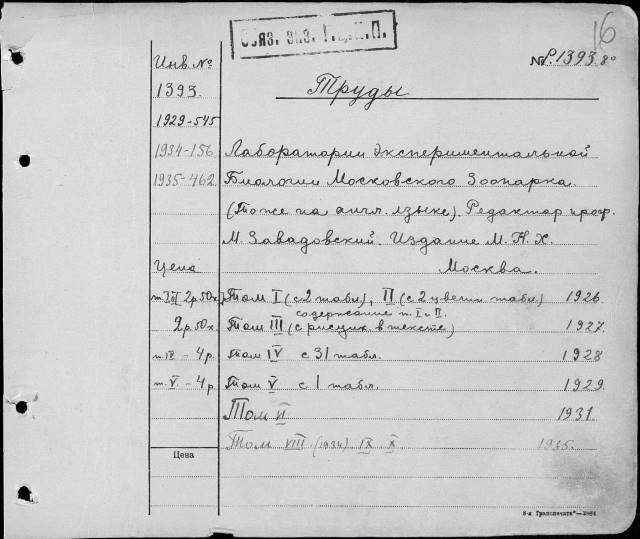 16
Обяз. экз. Г.Ц.К.П.
Инв. №
№ P. 1393.8°
1393.
Труды
1929-545
1934-156 Лаборатории Экспериментальной
1935-462 Биологии Московского Зоопарка.
(Тоже на англ. языке). Редактор проф.
М. Завадовский. Издание М. К. Х.
Цена Москва.
т. I, II 2р.50к. Том I (с 2 табл), II (с 2 цветн табл.) 1926
содержание т. I и II.
2р.50к. Том III (с рисунк. в тексте) 1927.
т. IV - 4р. Том IV с 31 табл. 1928
т. V - 4р. Том V с 1 табл. 1929.
Том VI 1931
Том VIII (1934) IX X 1935.
Цена